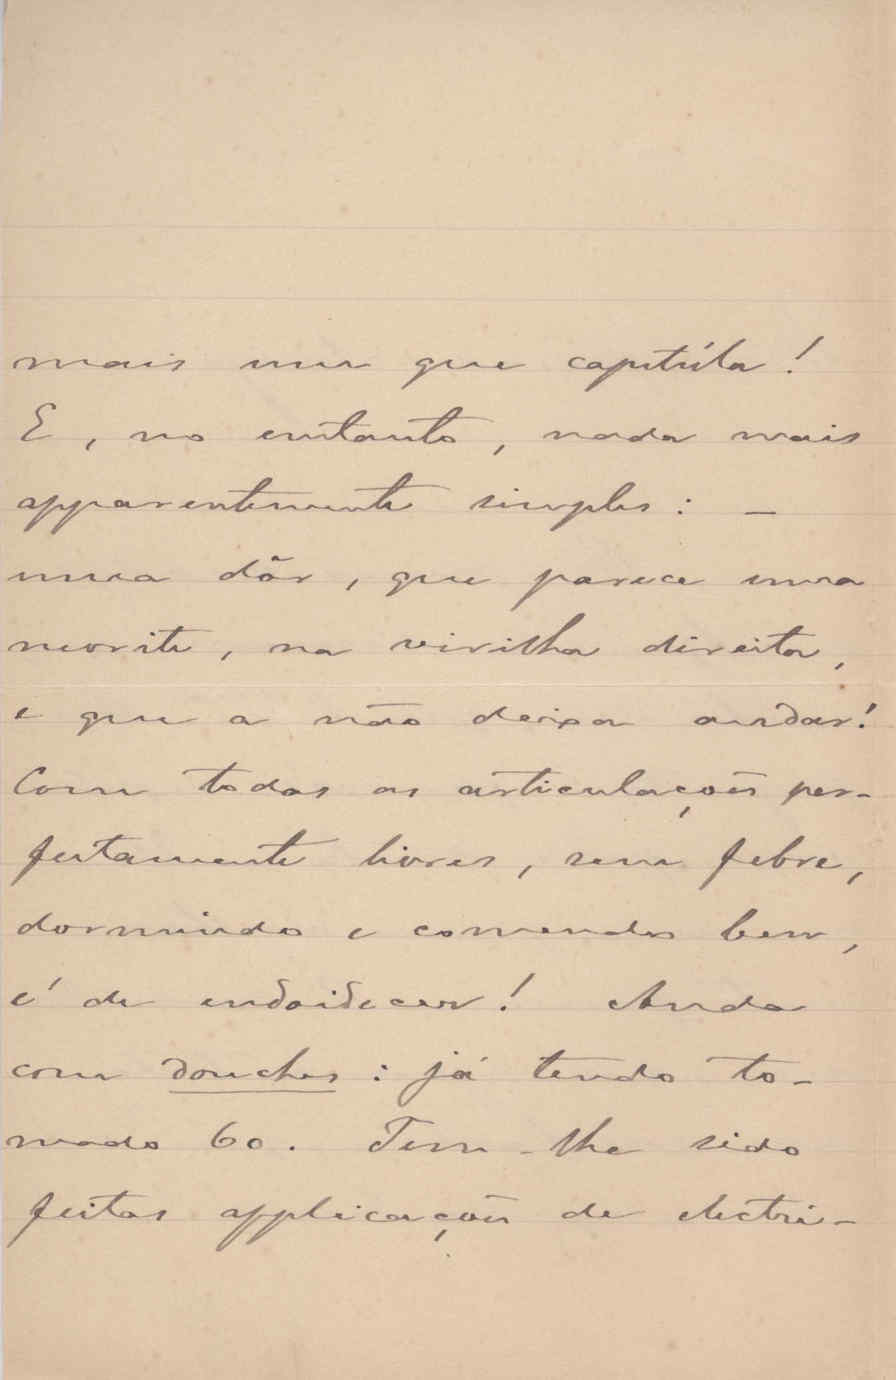 mais um que capitúla!
E, no entanto, nada mais
apparentemente simples: —
uma dôr, que parece uma
nevrite, na virilha direita,
e que a não deixa andar!
Com todas as articulações per-
feitamente livres, sem febre,
dormindo e comendo bem,
é de endoidecer! Anda
com douches: já tendo to-
mado 60. Tem-lhe sido
feitas applicações de electri-